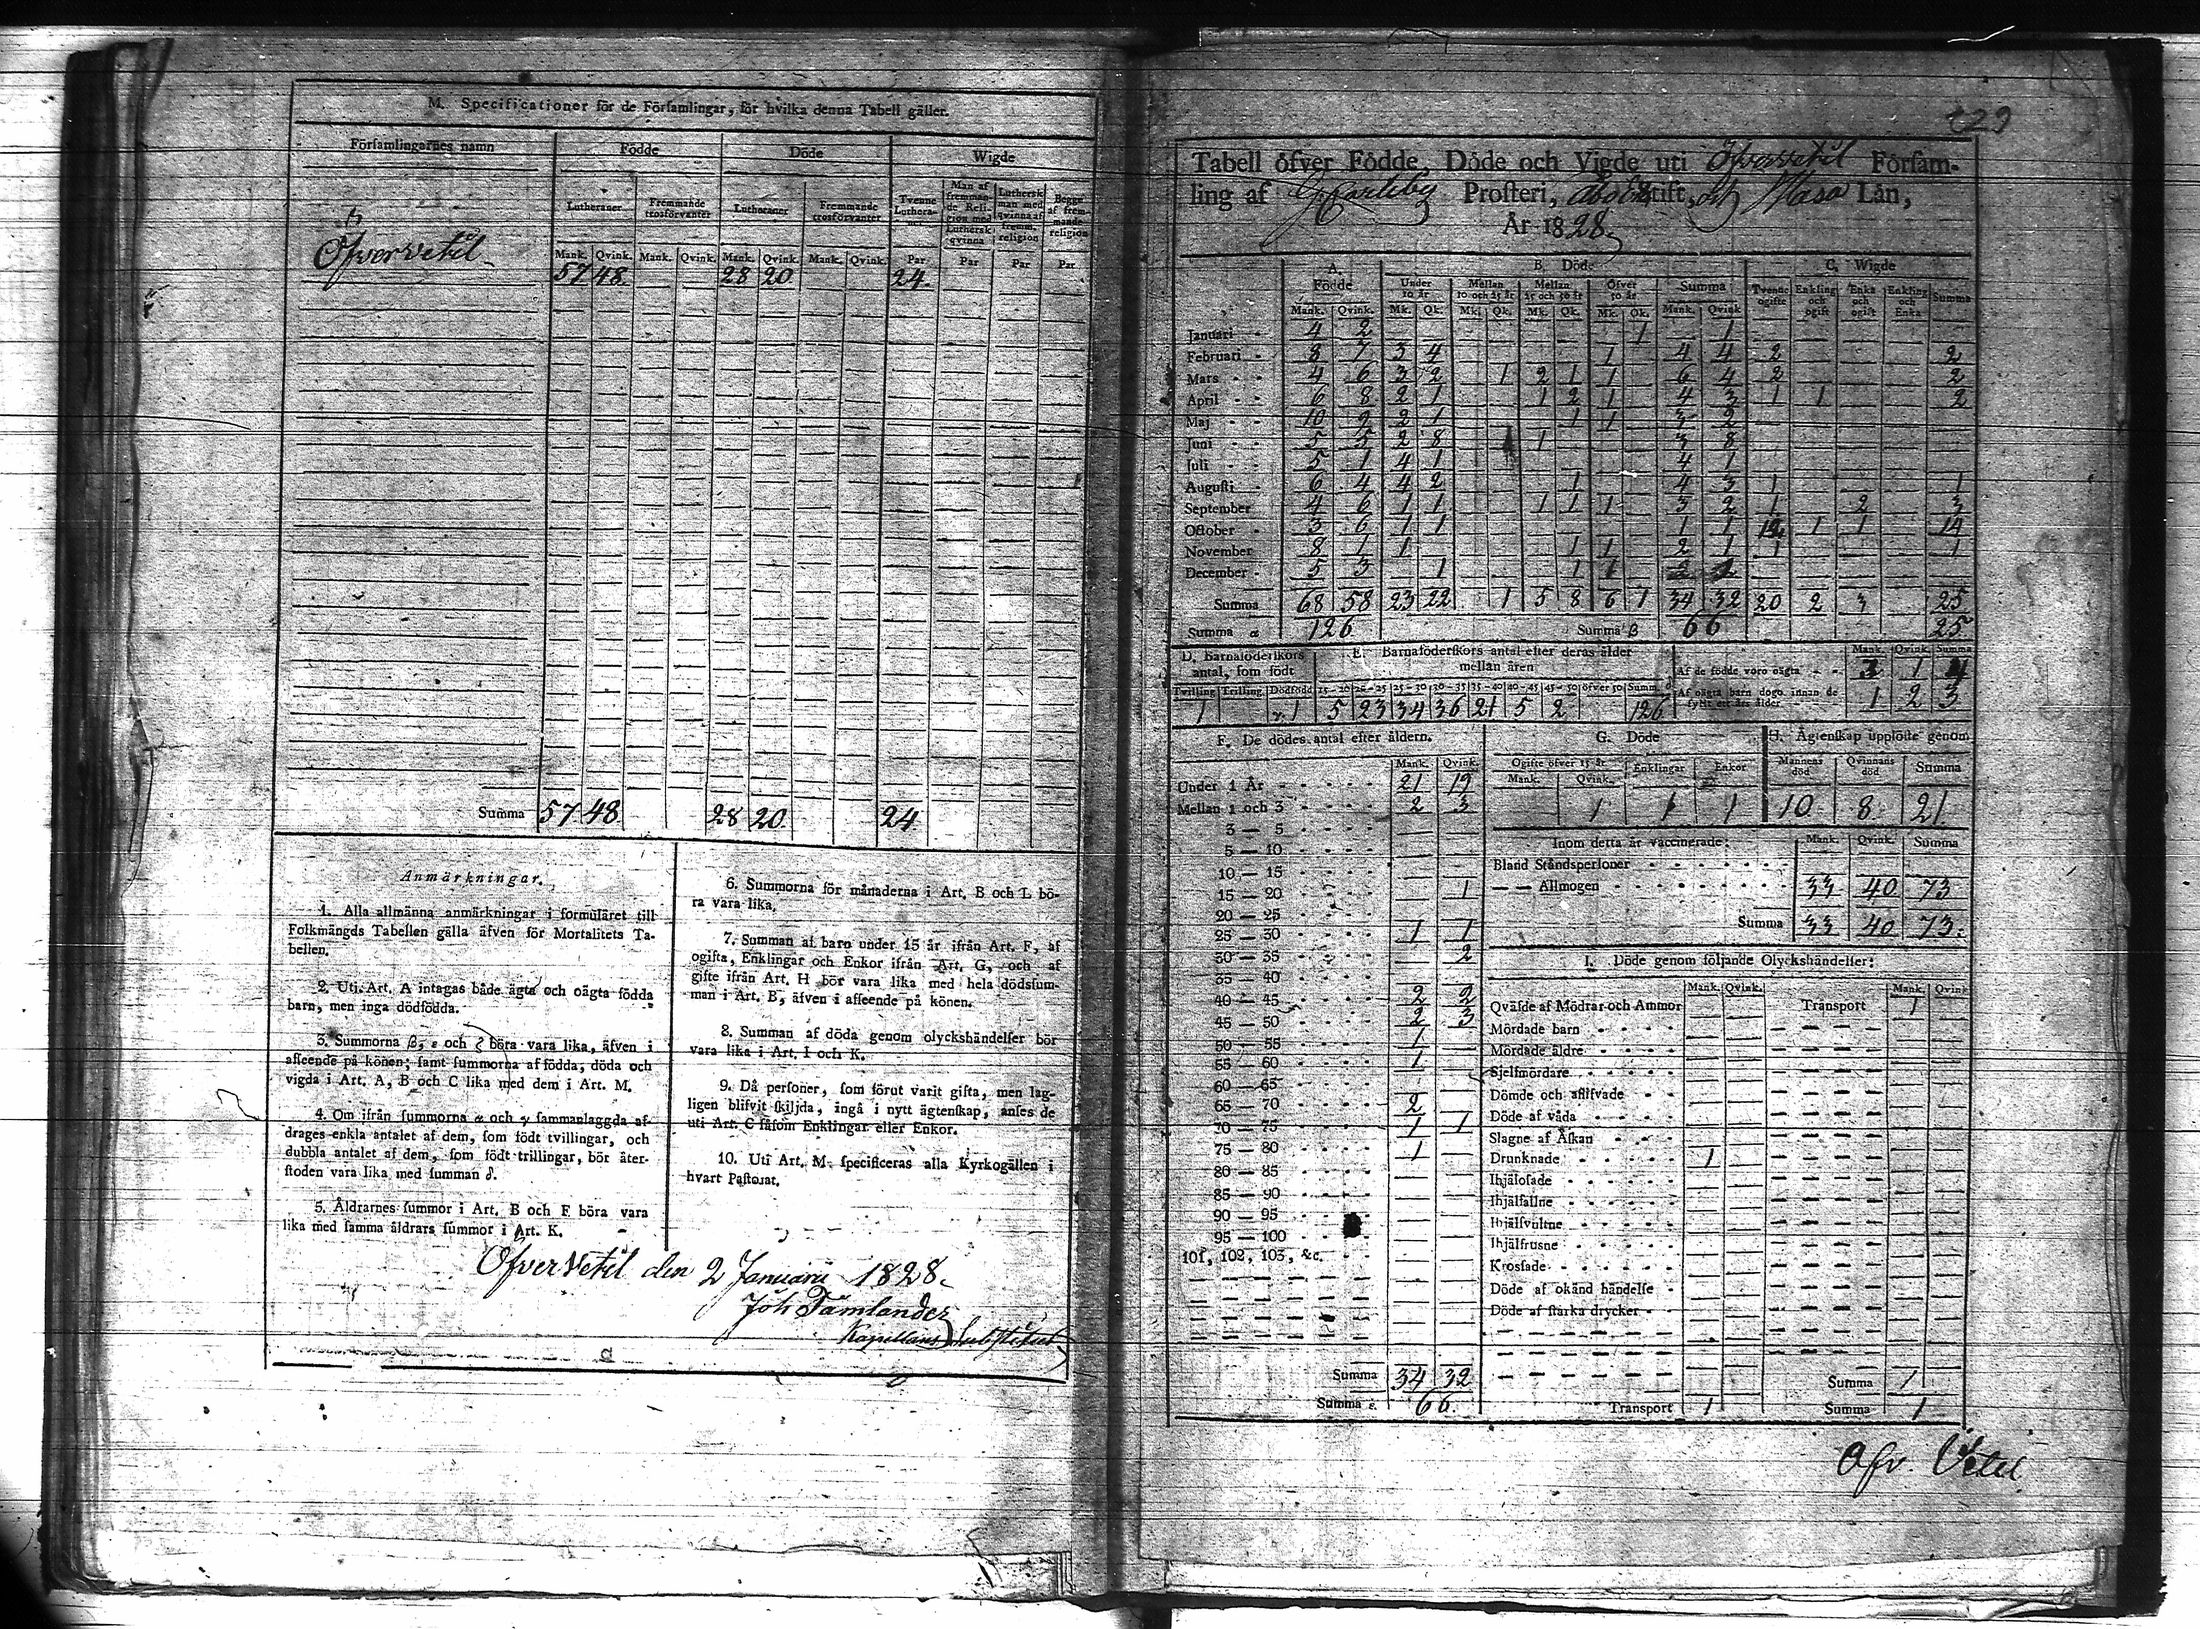 M. Specificationer för de Församlingar, för hvilka denna Tabell gäller.
Församlingarnes namn Födde Döde Wigde
Lutheraner Fremmande trosförvanter Lutheraner Fremmande trosförvanter Tvenne Lutheraner Man af fremmande Religion med Luthersk qvinna Luthersk man med qvinna af fremm. religion Begge af fremmande religion
Mank. Qvink. Mank. Qvink. Mank. Qvink. Mank. Qvink. Par Par Par Par
Öfvervetil 57 48 28 20 24
Summa 57 48 28 20 24
Anmärkningar.
1. Alla allmänna anmärkningar i formuläret till
Folkmängds Tabellen gälla äfven för Mortalitets Ta-
bellen.
2. Uti Art. A intagas både ägta och oägta födda
barn, men inga dödfödda.
3. Summorna β, ε och ζ böra vara lika, äfven i
afseende på könen; samt summorna af födda, döda och
vigda i Art. A, B och C lika med dem i Art. M.
4. Om ifrån summorna α och γ sammanlaggda af-
drages enkla antalet af dem, som födt tvillingar, och
dubbla antalet af dem, som födt trillingar, bör åter-
stoden vara lika med summan δ.
5. Åldrarnes summor i Art. B och F böra vara
lika med samma åldrars summor i Art. K.
6. Summorna för månaderna i Art. B och L bö-
ra vara lika.
7. Summan af barn under 15 år ifrån Art. F, af
ogifta, Enklingar och Enkor ifrån Art. G, och af
gifte ifrån Art. H bör vara lika med hela dödssum-
man i Art. B, äfven i afseende på könen.
8. Summan af döda genom olyckshändelser bör
vara lika i Art. I och K.
9. Då personer, som förut varit gifta, men lag-
ligen blifvit skiljda, ingå i nytt ägtenskap, anses de
uti Art. C såsom Enklingar eller Enkor.
10. Uti Art. M. specificeras alla Kyrkogällen i
hvart Pastorat.
Öfvervetil den 2 Januarii 1828.
Joh Tämlander
Kapellans Substitut
129
Tabell öfver Födde, Döde och Vigde uti Öfvervetil Försam-
ling af G. Carleby Prosteri, Åbo Stift, och Wasa Län,
År 1828.
A. Födde B. Döde C. Wigde
Under 10 år Mellan 10 och 25 år Mellan 25 och 50 år Öfver 50 år Summa Tvenne ogifte Enkling och ogift Enka och ogift Enkling och Enka Summa
Mank. Qvink. Mk. Qk. Mk. Qk. Mk. Qk. Mk. Qk. Mank. Qvink
Januari 4 2 1 1
Februari 8 7 3 4 1 4 4 2 2
Mars 4 6 3 2 1 2 1 1 6 4 2 2
April 6 8 2 1 1 2 1 4 3 1 1 2
Maj 10 9 2 1 1 1 3 2
Juni 5 5 2 8 1 3 8
Juli 5 1 4 1 4 1
Augusti 6 4 4 2 1 4 3 1 1
September 4 6 1 1 1 1 1 3 2 1 2 3
Oktober 3 6 1 1 1 1 12 1 1 14
November 8 1 1 1 1 2 1 1 1
December 5 3 1 1 1
Summa 68 58 23 22 1 5 8 6 1 34 32 20 2 3 25
Summa α 126 Summa β 66 25
D. Barnaföderskors antal, som födt
Tvilling Trilling Dödfödd
1 1
E. Barnaföderskors antal efter deras ålder mellan åren
15—20 20—25 25—30 30—35 35—40 40—45 45—50 öfver 50 Summa
5 23 34 36 21 5 2 126
Mank. Qvink. Summa
Af de födde voro oägta 3 1 4
Af oägta barn dogo innan de fyllt ett års ålder 1 2 3
F. De dödes antal efter åldern.
Mank. Qvink.
Under 1 År 21 19
Mellan 1 och 3 2 3
3 — 5
5 — 10
10 — 15
15 — 20 1
20 — 25
25 — 30 1 1
30 — 35 2
35 — 40
40 — 45 2 2
45 — 50 2 3
50 — 55 1
55 — 60 1
60 — 65
65 — 70 2
70 — 75 1 1
75 — 80 1
80 — 85
85 — 90
90 — 95
95 — 100
101, 102, 103, &c.
Summa 34 32
Summa ε. 66
G. Döde
Ogifte öfver 15 år Enklingar Enkor
Mank. Qvink.
1 1 1
H. Ägtenskap upplöste genom
Mannens död Qvinnans död Summa
10 8 21
Inom detta år vaccinerade: Mank. Qvink. Summa
Bland Ståndspersoner
— — Allmogen 33 40 73
Summa 33 40 73
I. Döde genom följande Olyckshändelser:
Mank. Qvink. Mank. Qvink
Qväfde af Mödrar och Ammor Transport 1
Mördade barn
Mördade äldre
Sjelfmördare
Dömde och aflifvade
Döde af våda
Slagne af Åskan
Drunknade 1
Ihjälosade
Ihjälfallne
Ihjälsvultne
Ihjälfrusne
Krossade
Döde af okänd händelse
Döde af starka drycker
Summa 1
Transport 1 Summa 1
Öfv. Vetil